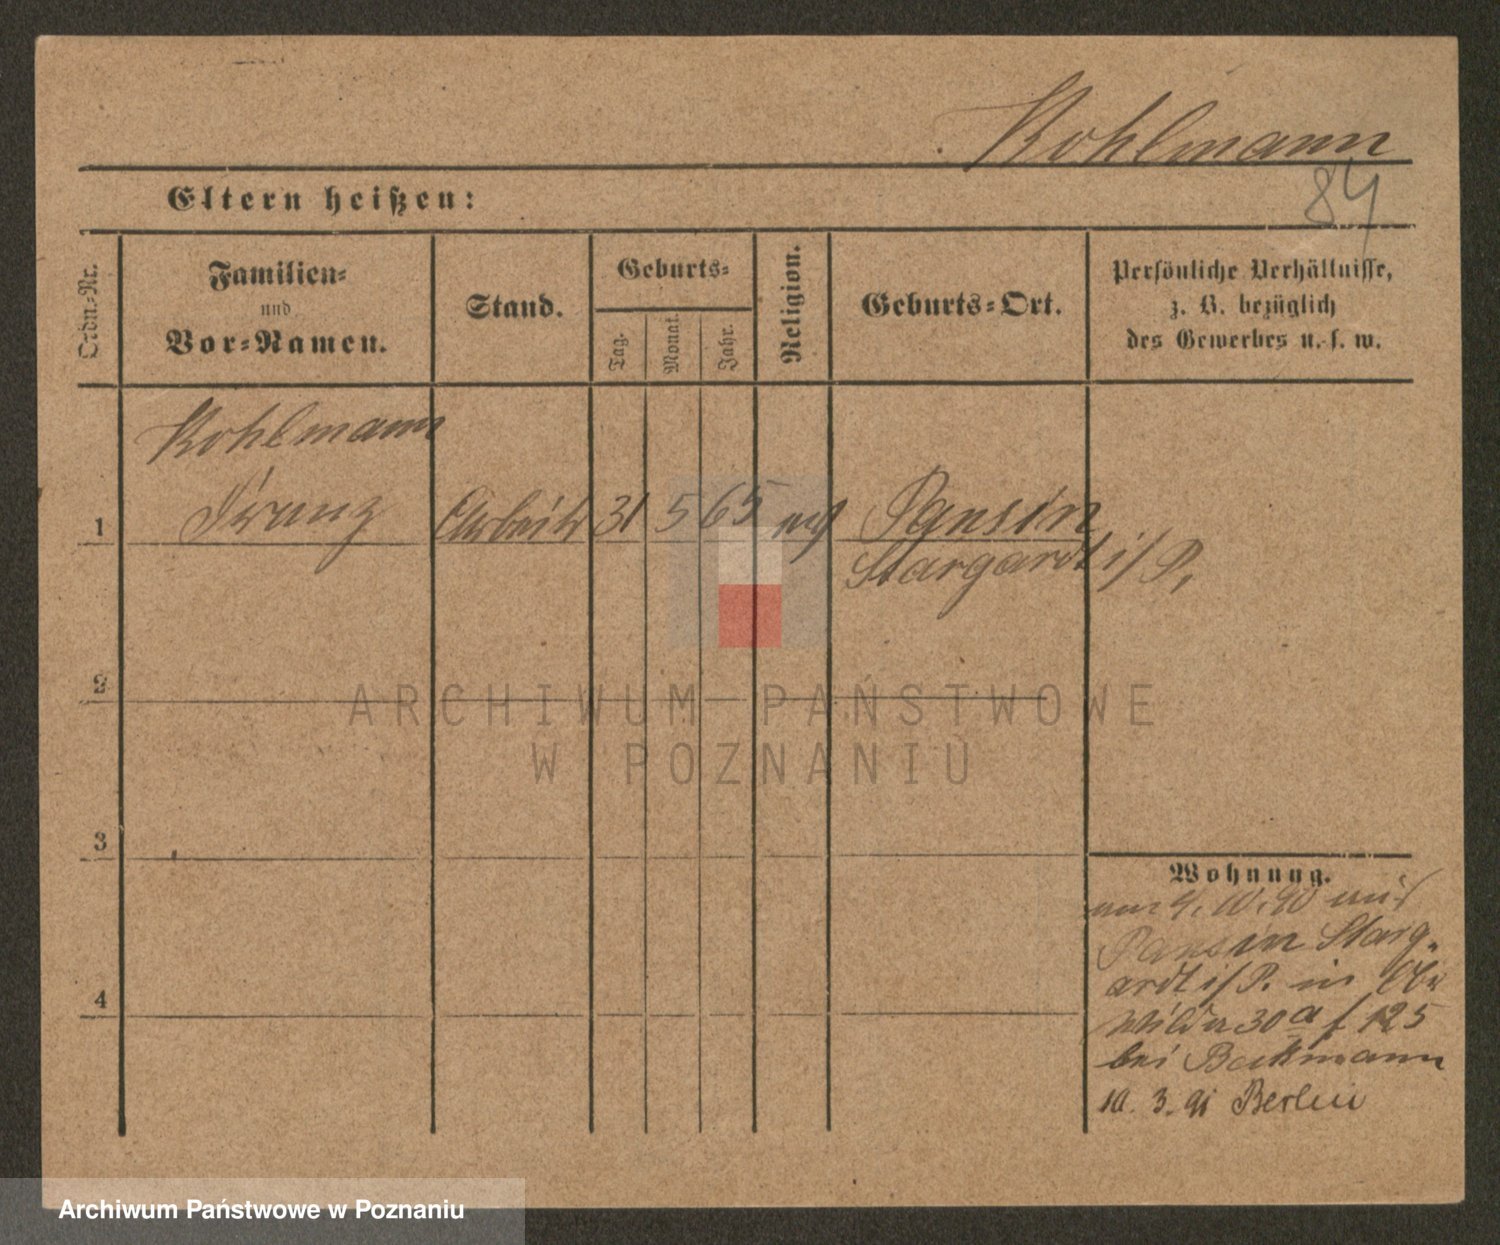 Kohlmann
84
Eltern heißen:
Ordn.-Nr.
Familien-
und
Vor-Namen.
Stand.
Geburts-
Tag.
Monat.
Jahr.
Religion.
Geburts-Ort.
Persönliche Verhältnisse,
z. B. bezüglich
des Gewerbes u. s. w.
Kohlmann
1 Franz Arbeiter 31 5 65 Pansin
Stargardt i/P.
2
3
4
Wohnung.
am 4. 10. 90 aus
Pansin Starg-
ardt i/P. in
Wilda 30a f 125
bei Backmann
10. 3. 91 Berlin
ARCHIWUM PAŃSTWOWE
W POZNANIU
Archiwum Państwowe w Poznaniu